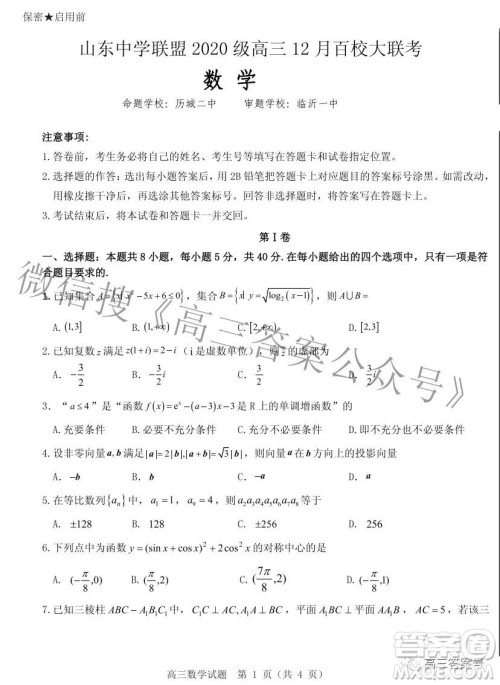 保密★启用前
山东中学联盟 2020 级高三 12 月百校大联考
数 学
命题学校：历城二中 审题学校：临沂一中
注意事项：
1. 答卷前，考生务必将自己的姓名、考生号等填写在答题卡和试卷指定位置。
2. 选择题的作答：选出答案后，用 2B 铅笔把答题卡上对应题目的答案标号涂黑。如需改动，
用橡皮擦干净后，再选涂其他答案标号。回答非选择题时，将答案写在答题卡上。
3. 考试结束后，将本试卷和答题卡一并交回。
第 I 卷
一、选择题：本题共 8 小题，每小题 5 分，共 40 分. 在每小题给出的四个选项中，只有一项是符
合题目要求的.
1. 已知集合 A={x|x²−5x+6≤0}，集合 B={x|y=√(log₂(x−1))}，则 A∪B=
A. (1,3] B. (1,+∞) C. [2,+∞) D. [2,3]
2. 已知复数 z 满足 z(1+i)=2−i（i 是虚数单位），则 z 的虚部为
A. −3/2 B. −3/2 i C. 3/2 D. 3/2 i
3. “a≤4”是“函数 f(x)=eˣ−(a−3)x−3 是 R 上的单调增函数”的
A. 充要条件 B. 必要不充分条件 C. 充分不必要条件 D. 即不充分也不必要条件
4. 设非零向量 a, b 满足 |a|=2|b|, |a+b|=√3|b|，则 a 在 b 方向上的投影向量
A. −b B. b C. −a D. a
5. 在等比数列{aₙ}中，a₁=1，a₈=4，则
A. ±128 B. 128 C. ±256 D. 256
6. 下列点中为函数 y=(sin x+cos x)²+2cos²x 的对称中心的是
A. (−π/8,0) B. (π/8,2) C. (7π/8,2) D. (−3π/8,2)
7. 已知三棱柱 ABC−A₁B₁C₁ 中，
AC=5，若该三
高三数学试题 第 1 页（共 4 页）
微信搜《高三答案公众号》
高三答案号